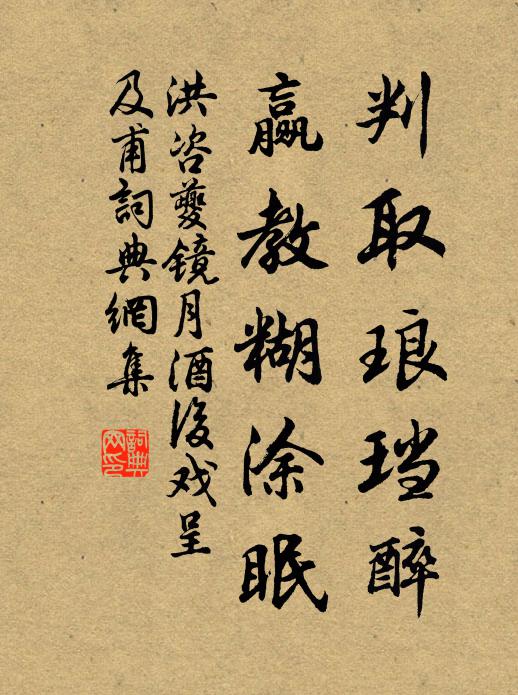 判取琅珰醉
赢教糊涂眠
洪咨夔镜月酒後戏呈
及甫詞典網集
詞典網印